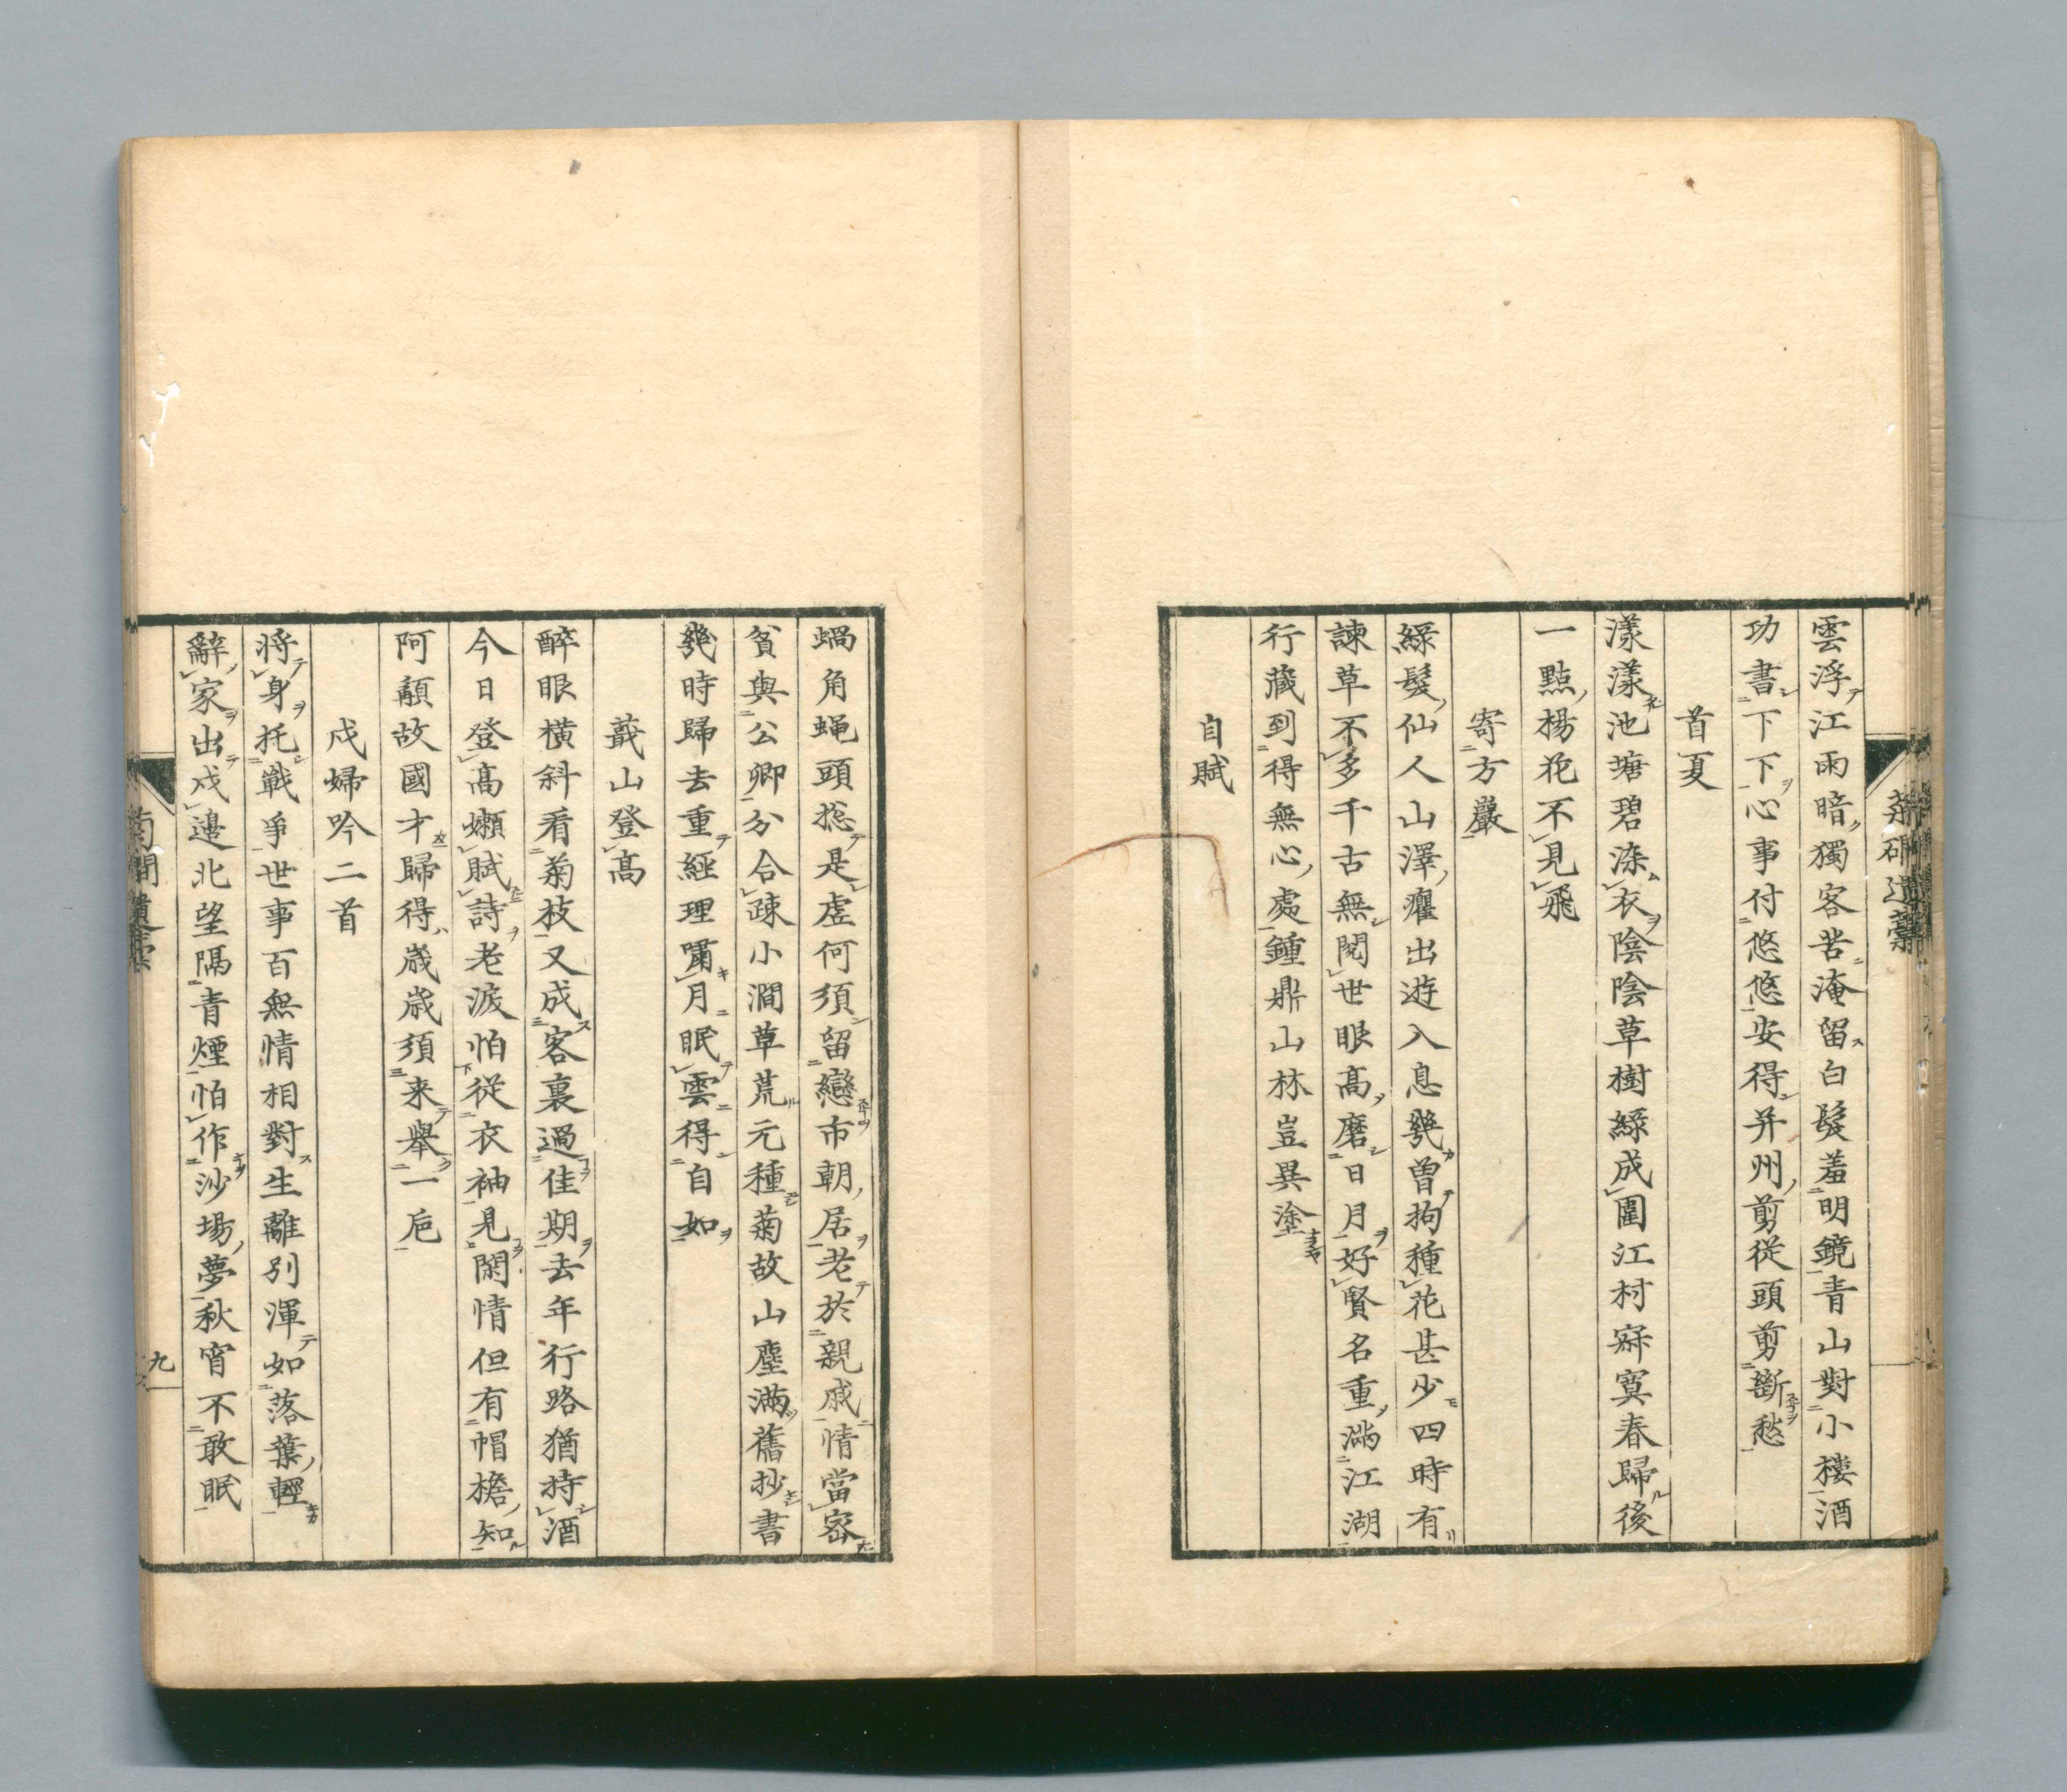 菊磵遺藁
雲浮江雨暗獨客苦淹留白髮羞明鏡青山對小樓酒
功書下下心事付悠悠安得并州剪從頭剪斷愁
首夏
漾漾池塘碧染衣陰陰草樹緑成圍江村寂寞春歸後
一點楊花不見飛
寄方巖
緑髮仙人山澤癯出遊入息幾曾拘種花甚少四時有
諫草不多千古無閱世眼高磨日月好賢名重滿江湖
行藏到得無心處鍾鼎山林豈異塗
自賦
蝸角蝿頭揔是虚何須留戀市朝居老於親戚情當密
貧與公卿分合疎小澗草荒元種菊故山塵滿舊抄書
幾時歸去重經理嘯月眠雲得自如
蕺山登高
醉眼横斜看菊枝又成客裏過佳期去年行路猶持酒
今日登高嬾賦詩老淚怕從衣袖見閑情但有帽檐知
阿故國才歸得歳歳須来舉一巵
戍婦吟二首
將身托戰爭世事百無情相對生離別渾如落葉輕
辭家出戍邊北望隔青煙怕作沙場夢秋宵不敢眠
九